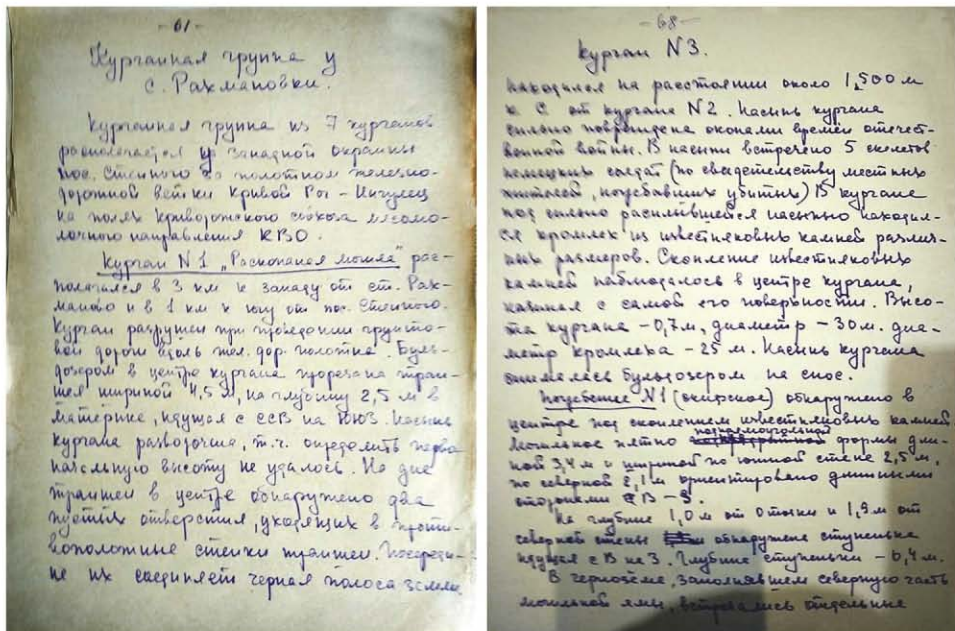 - 61 -
Курганная группа у
с. Рахмановки.
Курганная группа из 7 курганов
располагается у западной окраины
пос. Степного за полотном железно-
дорожной ветки Кривой Рог - Ингулец
на полях Криворожского совхоза мясомо-
лочного направления КВО.
Курган N1 „Раскопаная могила" рас-
полагался в 3 км к западу от ст. Рах-
маново и в 1 км к югу от пос. Степного.
Курган разрушен при проведении грунто-
вой дороги вдоль жел. дор. полотна. Буль-
дозером в центре кургана прорезана тран-
шея шириной 4,5 м, на глубину 2,5 м в
материке, идущая с ССВ на ЮЮЗ. Насыпь
кургана разволочена, т.ч. определить перво
начальную высоту не удалось. На дне
траншеи в центре обнаружено два
пустых отверстия, уходящих в проти-
воположные стенки траншеи. Посереди-
не их соединяет черная полоса земли
- 68 -
Курган N3.
находился на расстоянии около 1,500 м
к С от кургана N2. Насыпь кургана
сильно повреждена окопами времен отечест-
венной войны. В насыпи встречено 5 скелетов
немецких солдат (по свидетельству местных
жителей, погребавших убитых) В кургане
под сильно расплывшейся насыпью находил-
ся кромлех из известняковых камней различ-
ных размеров. Скопление известняковых
камней наблюдалось в центре кургана,
начиная с самой его поверхности. Высо-
та кургана - 0,7 м, диаметр - 30 м. диа-
метр кромлеха - 25 м. Насыпь кургана
снималась бульдозером на снос.
Погребение N1 (скифское) обнаружено в
центре под скоплением известняковых камней
Могильное пятно подпрямоугольной формы дли-
ной 3,4 м и шириной по южной стене 2,5 м,
по северной 2,1 м ориентировано длинными
сторонами В - З.
На глубине 1,0 м от 0 точки и 1,9 м от
северной стены обнаружена ступенька
идущая с В на З. Глубина ступеньки - 0,4 м.
В черноземе, заполнявшем северную часть
могильной ямы, встречались отдельные